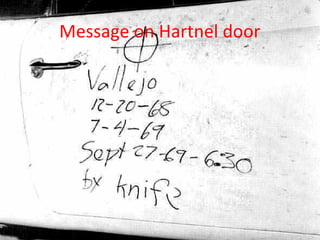 Message on Hartnel door
Vallejo
12-20-68
7-4-69
Sept 27-69-6:30
by knife